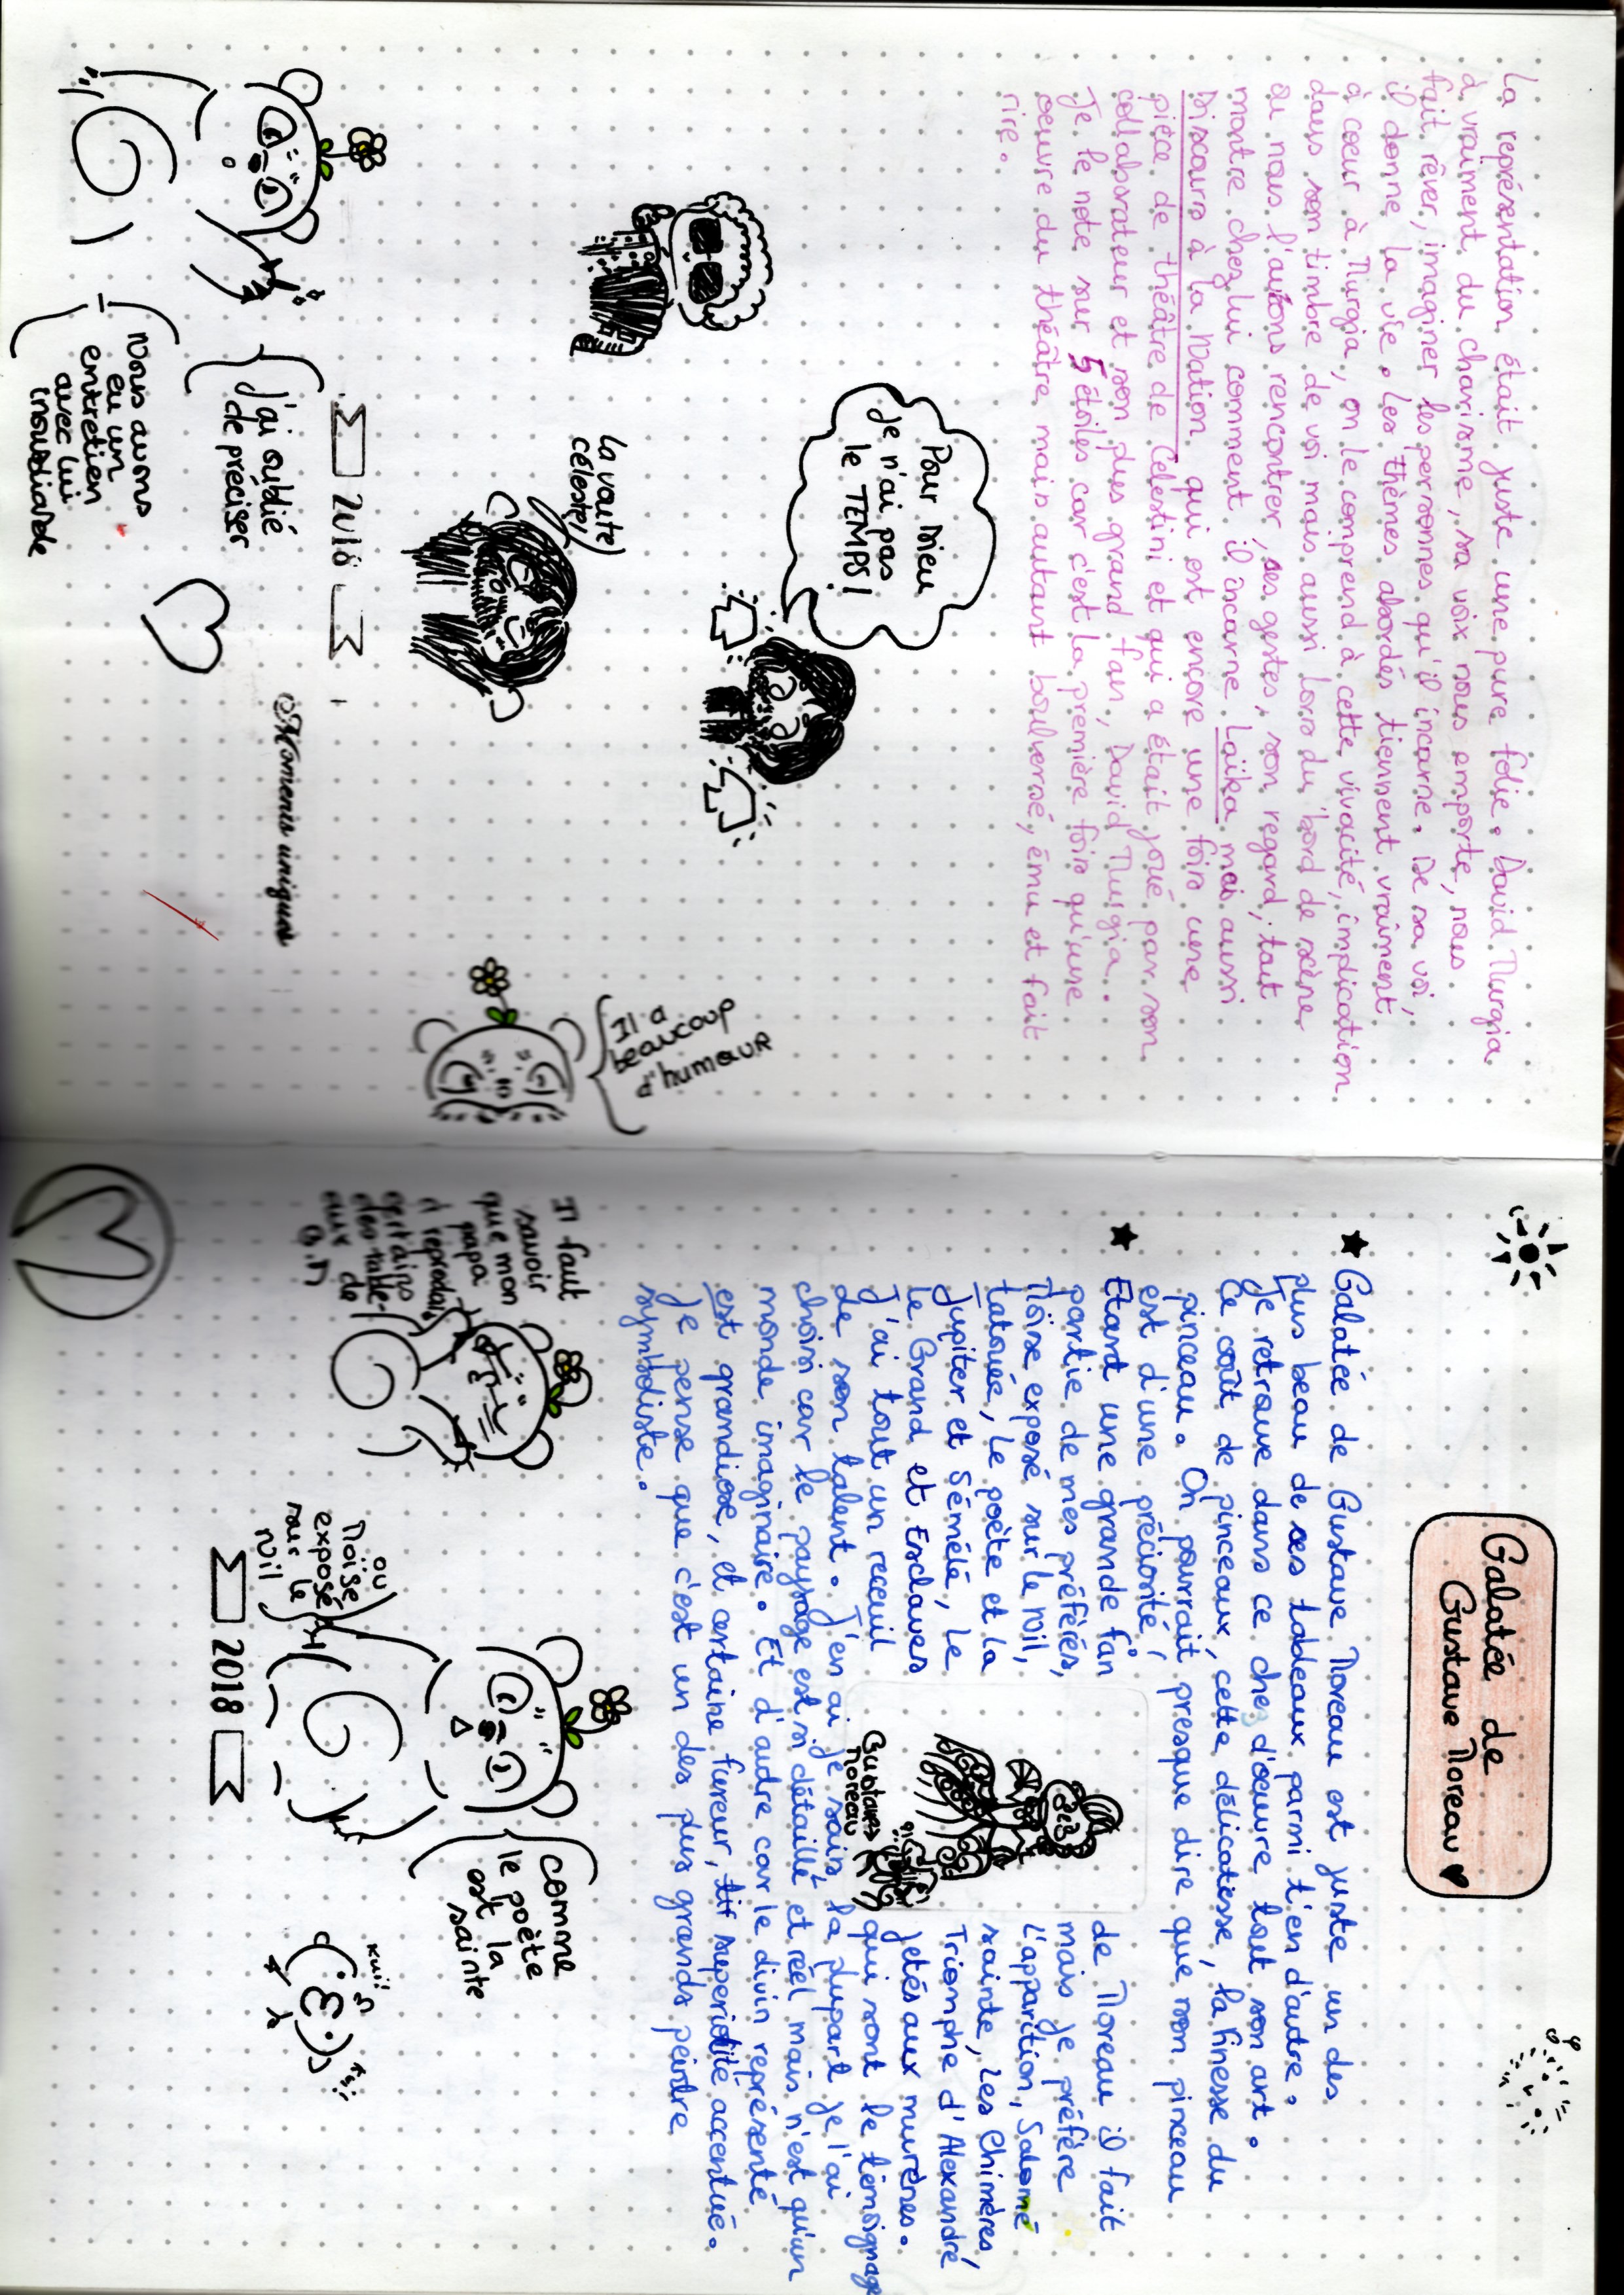 La représentation était juste une pure folie. David Murgia
à vraiment du charisme, sa voix nous emporte, nous
fait rêver, imaginer les personnes qu'il incarne. De sa voi,
il donne la vie. Les thèmes abordés tiennent vraiment
à coeur à Murgia, on le comprend à cette vivacité, implication
dans son timbre de voi mais aussi lors du bord de scène
ou nous l'avions rencontrer, ses gestes, son regard, tout
montre chez lui comment il incarne Laïka mai aussi
Discours à la Nation qui est encore une fois une
pièce de théâtre de Celestini et qui a était joué par son
collaborateur et son plus grand fan, David Murgia.
Je le note sur 5 étoiles car c'est la première fois qu'une
oeuvre du théâtre mais autant boulversé, ému et fait
rire.
Pour Dieu
je n'ai pas
le TEMPS!
La voute
céleste,
Il a
beaucoup
d'humour
2018
Moments uniques
j'ai oublié
de préciser
Nous avons
eu un
entretien
avec lui
inoubliable
Galatée de
Gustave Moreau
Galatée de Gustave Moreau est juste un des
plus beau de ses tableaux parmi t'en d'autre.
Je retrouve dans ce chez d'oeuvre tout son art.
Ce coût de pinceaux, cette délicatesse, la finesse du
pinceau. On pourrait presque dire que son pinceau
est d'une préciosité!
Etant une grande fan de Moreau il fait
partie de mes préférés, mais je préfère
Moïse exposé sur le Nil, L'apparition, Salomé
tatouée, Le poète et la sainte, Les Chimères,
Jupiter et Sémélé, Le Triomphe d'Alexandre
le Grand et Esclaves jetés aux murènes.
J'ai tout un receuil qui sont le témoignage
Gustave
Moreau
de son talent. J'en ai je sais, la plupart je l'ai
choisi car le paysage est si détaillé et réel mais n'est qu'un
monde imaginaire. Et d'autre car le divin représenté
est grandiose, et certaine fureur, superiorité accentué.
Je pense que c'est un des plus grands peintre
symboliste.
Il faut
savoir
que mon
papa
a reproduis
certains
des table-
aux de
G.M
comme
le poète
est la
sainte
ou
Moïse
exposé
sur le
Nil
kui!
kui!
2018